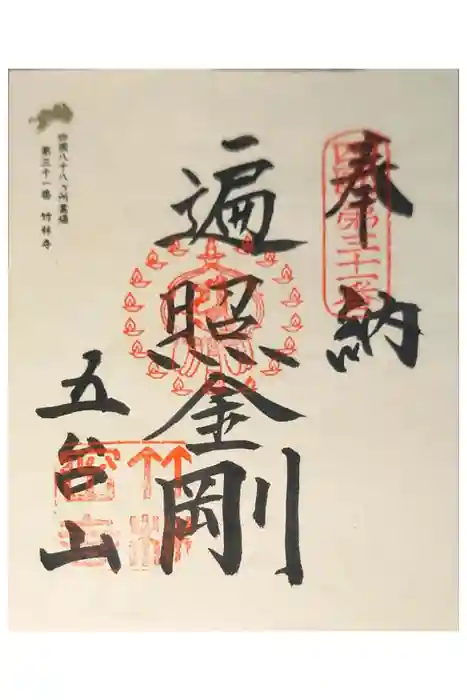 奉納
四国第三十一番
遍照金剛
五台山
四国八十八ヶ所霊場
第三十一番 竹林寺